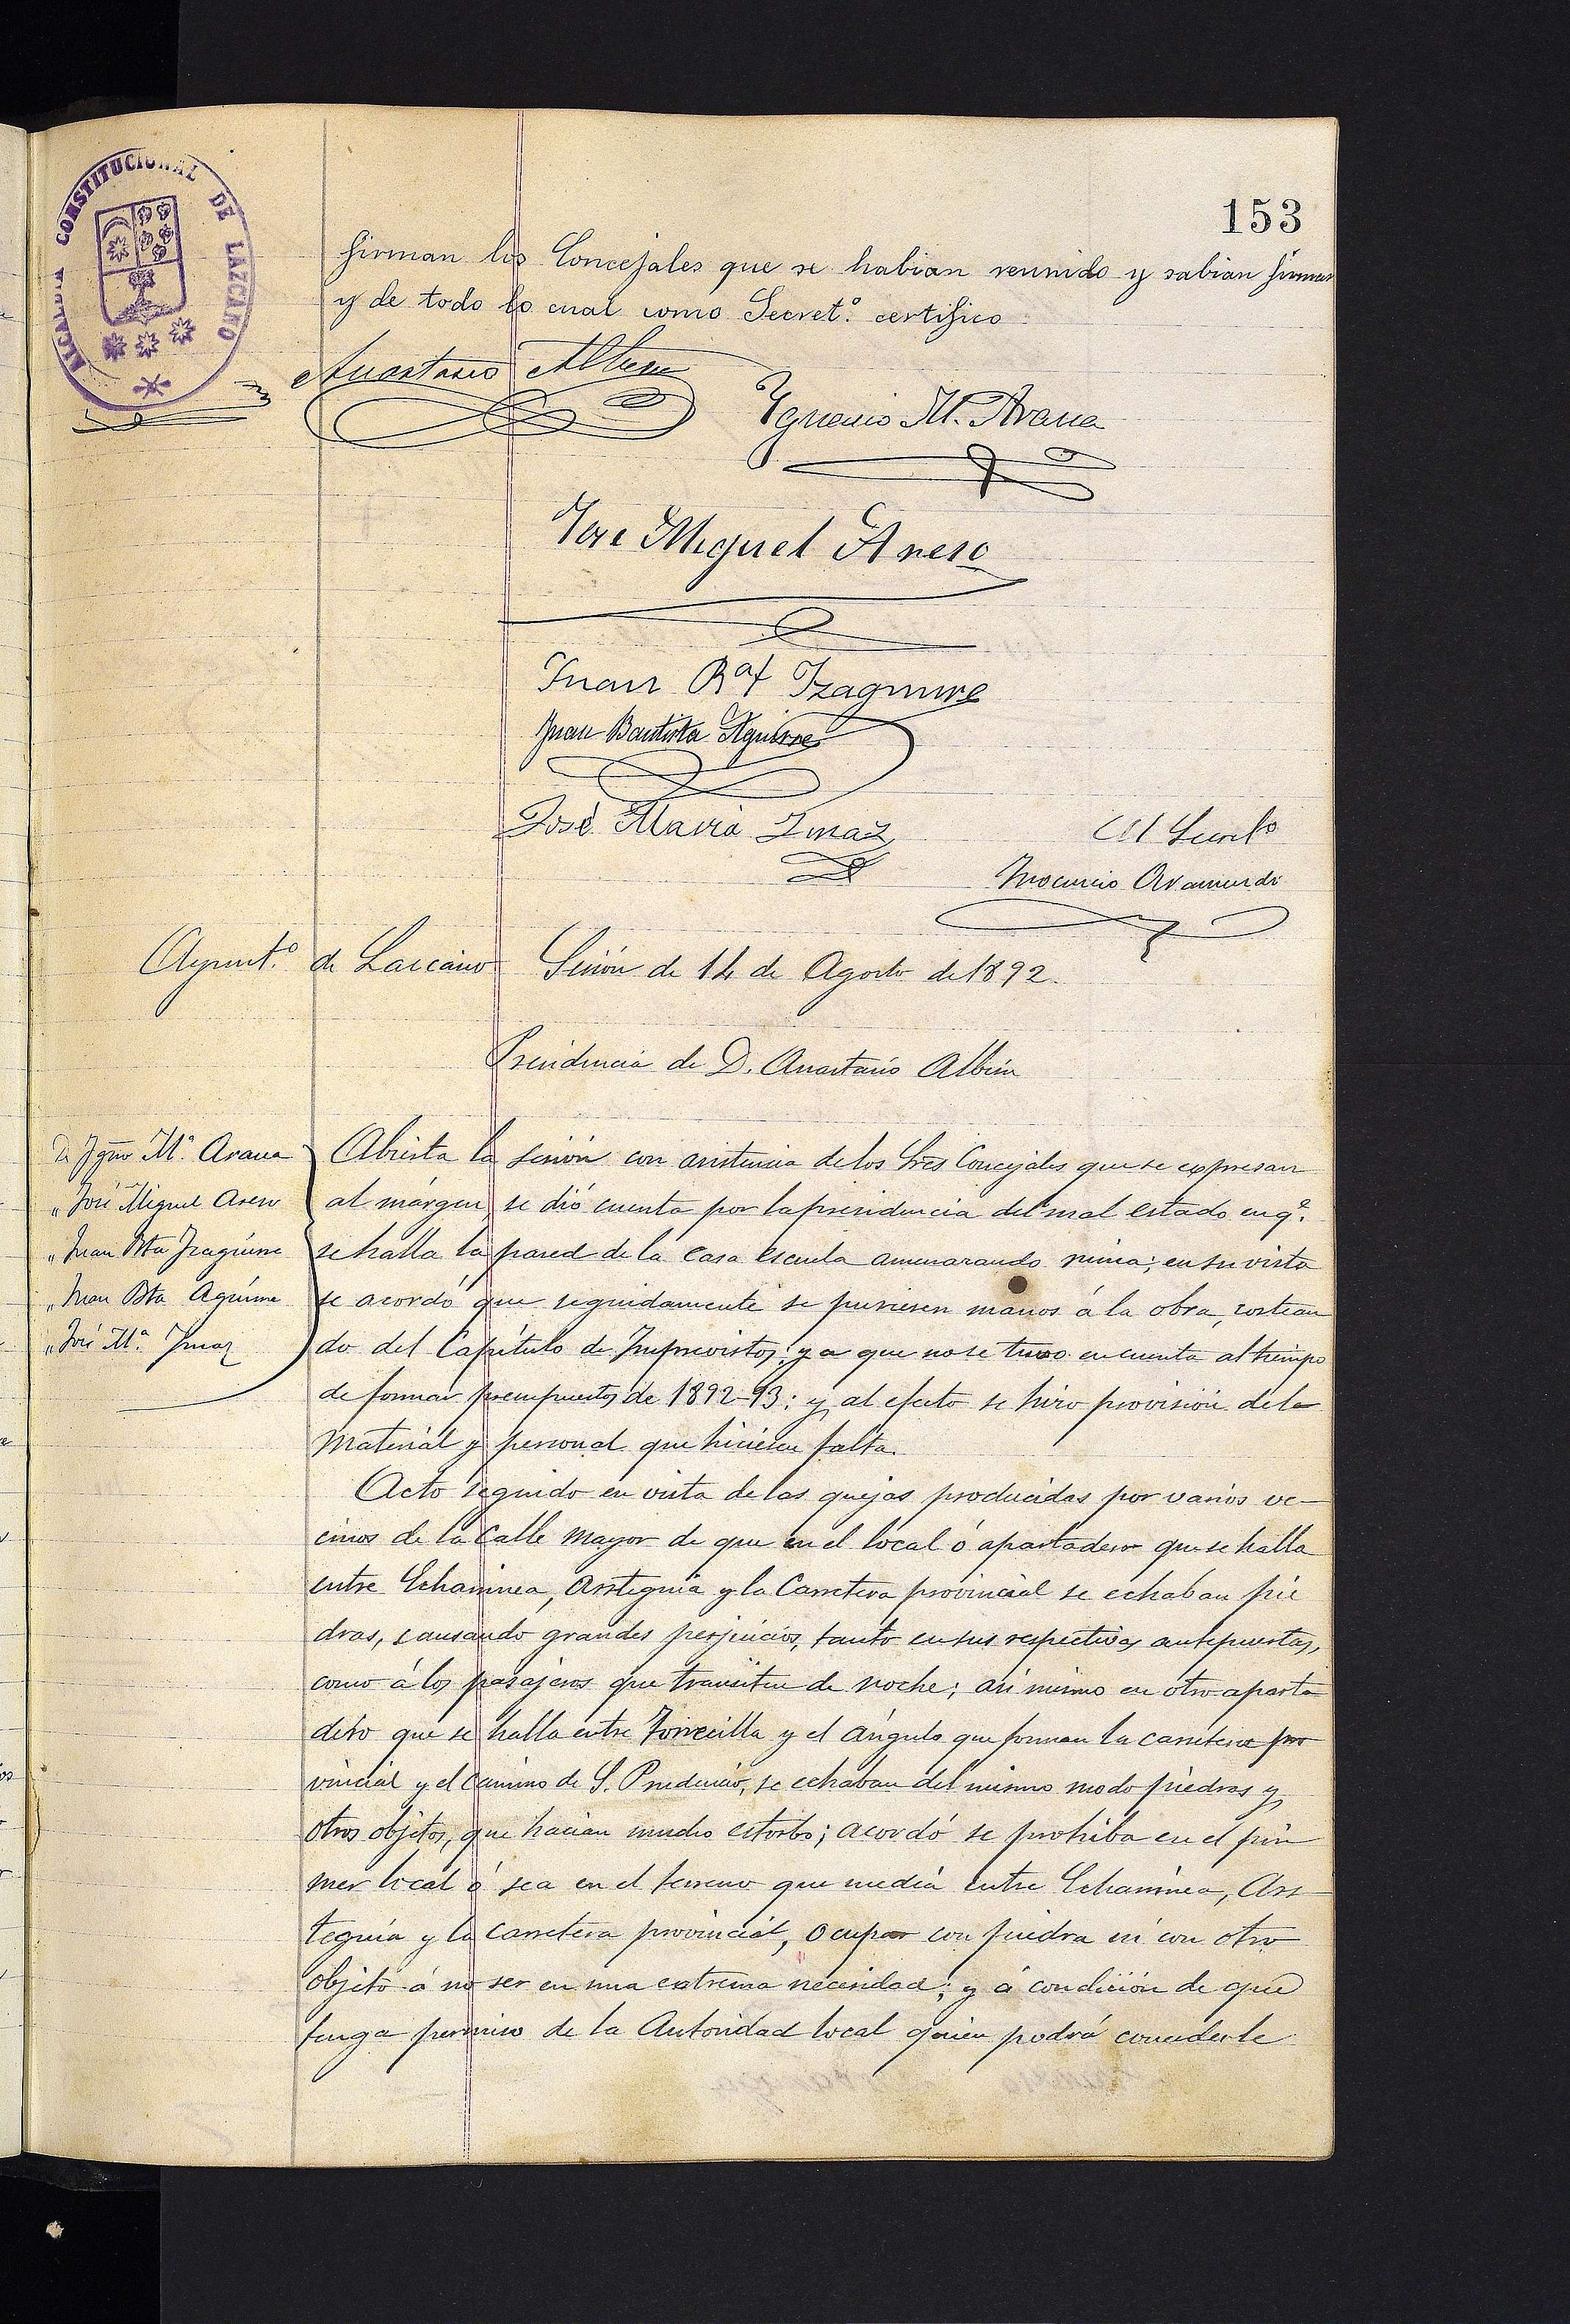 153
ALCALDIA CONSTITUCIONAL DE LAZCANO
firman los Concejales que se habian reunido y sabian firmar
y de todo lo cual como Secret.º certifico
Anastasio Albisu
Ygnacio M. Arana
Jose Miguel Areso
Juan Bat Izaguirre
Juan Bautista Aguirre
José Maria Imaz
El Secret.º
Inocencio Aramendi
Ayunt.º de Lazcano Sesión de 14 de Agosto de 1892.
Presidencia de D. Anastasio Albisu
D. Ygno M.ª Arana
" José Miguel Areso
" Juan Bta Izaguirre
" Juan Bta Aguirre
" José M.ª Ymaz
Abierta la sesión con asistencia de los Sres Concejales que se expresan
al márgen, se dió cuenta por la presidencia del mal estado en q.e
se halla la pared de la casa escuela amenazando ruina; en su vista
se acordó que seguidamente se pusiesen manos á la obra, costean
do del Capítulo de Imprevistos; ya que no se tuvo en cuenta al tiempo
de formar presupuestos de 1892-93: y al efecto se hizo provisión de la
material y personal que hiciesen falta.
Acto seguido en vista de las quejas producidas por varios ve-
cinos de la Calle mayor de que en el local ó apartadero que se halla
entre Echaninea, Arsteguia y la Carretera provincial se echaban pie
dras, causando grandes perjuicios, tanto en sus respectivas antepuertas,
como á los pasajeros que transiten de noche; asi mismo en otro aparta
dero que se halla entre Torrecilla y el ángulo que forman la carretera pro
vincial y el camino de S. Prudencio, se echaban del mismo modo piedras y
otros objetos, que hacian mucho estorbo; acordó se prohiba en el pri
mer local ó sea en el terreno que media entre Echaninea, Ars-
teguia y la carretera provincial, ocupar con piedra ni con otro
objeto á no ser en una extrema necesidad; y á condición de que
tenga permiso de la Autoridad local quien podrá concederle